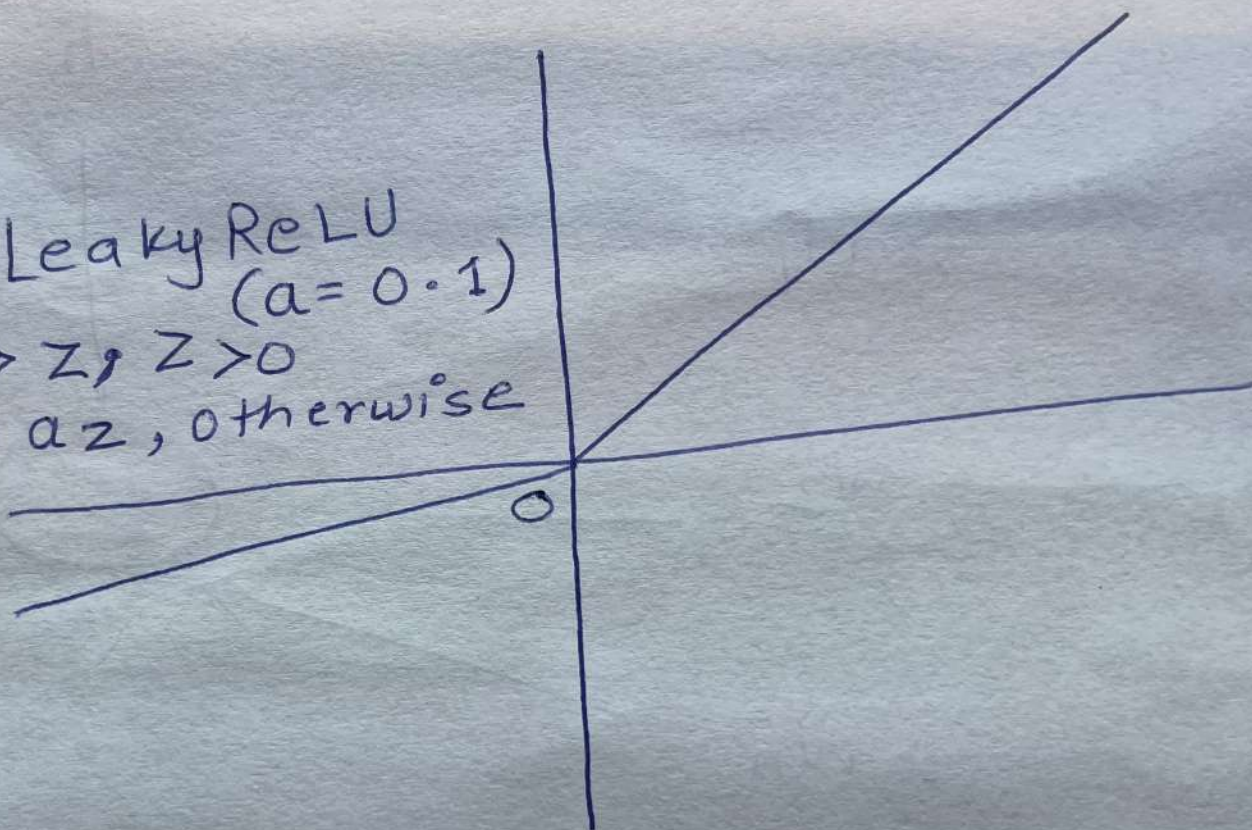 Leaky ReLU
(a = 0.1)
> z, z > 0
az, otherwise
0